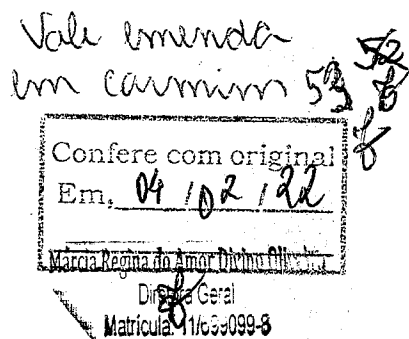 Vale emenda 52
em carmim 53
Confere com original
Em, 04 / 02 / 22
Márcia Regina do Amor Divino Oliveira
Diretora Geral
Matrícula: 11/699099-8